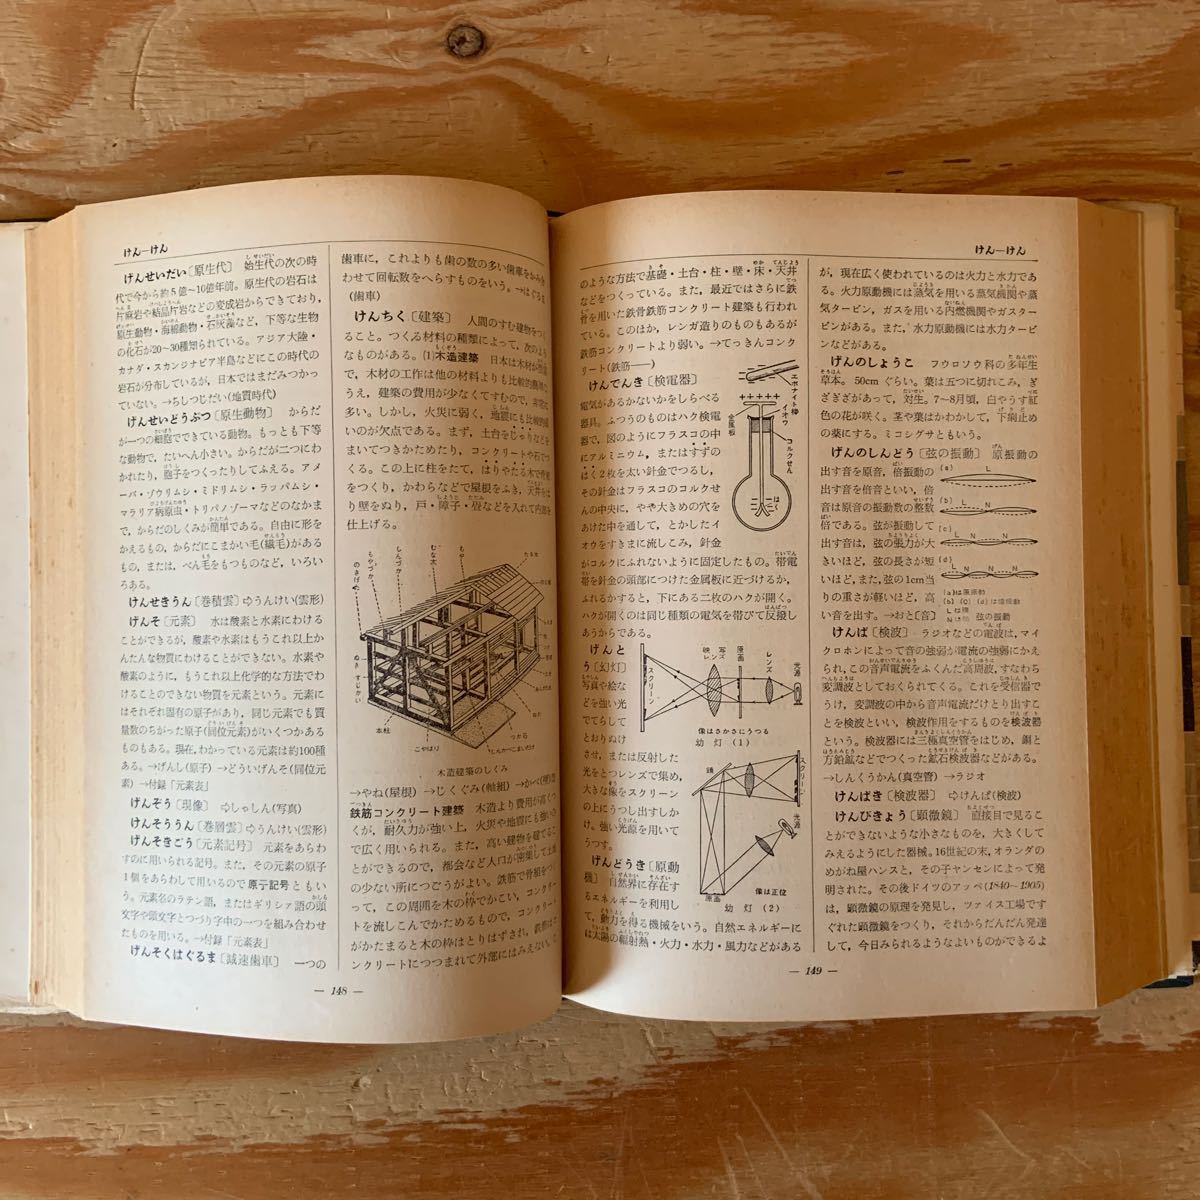 けん─けん
げんせいだい〔原生代〕 始生代の次の時
代で今から約5億~10億年前。原生代の岩石は
片麻岩や結晶片岩などの変成岩からできており,
原生動物・海綿動物・石灰藻など, 下等な生物
の化石が20~30種知られている。アジア大陸・
カナダ・スカンジナビア半島などにこの時代の
岩石が分布しているが, 日本ではまだみつかっ
ていない。→ちしつじだい(地質時代)
げんせいどうぶつ〔原生動物〕 からだ
が一つの細胞でできている動物。もっとも下等
な動物で, たいへん小さい。からだが二つにわ
かれたり, 胞子をつくったりしてふえる。アメ
ーバ・ゾウリムシ・ミドリムシ・ラッパムシ・
マラリア病原虫・トリパノゾーマなどのなかま
で, からだのしくみが簡単である。自由に形を
かえるもの, からだにこまかい毛(繊毛)がある
もの, または, べん毛をもつものなど, いろい
ろある。
けんせきうん〔巻積雲〕⇨うんけい(雲形)
げんそ〔元素〕 水は酸素と水素にわける
ことができるが, 酸素や水素はもうこれ以上か
んたんな物質にわけることができない。水素や
酸素のように, もうこれ以上化学的な方法でわ
けることのできない物質を元素という。元素に
はそれぞれ固有の原子があり, 同じ元素でも質
量数のちがった原子(同位元素)がいくつかある
ものもある。現在, わかっている元素は約100種
ある。→げんし(原子)→どういげんそ(同位元
素)→付録「元素表」
げんぞう〔現像〕 ⇨しゃしん(写真)
けんそううん〔巻層雲〕⇨うんけい(雲形)
げんそきごう〔元素記号〕元素をあらわ
すのに用いられる記号。また, その元素の原子
1個をあらわして用いるので原子記号ともい
う。元素名のラテン語, またはギリシア語の頭
文字や頭文字とつづり字中の一つを組み合わせ
たものを用いる。→付録「元素表」
げんそくはぐるま〔減速歯車〕 一つの
歯車に, これよりも歯の数の多い歯車をかみ合
わせて回転数をへらすものをいう。→はぐるま
(歯車)
けんちく〔建築〕 人間のすむ建物をつく
ること。つくる材料の種類によって, 次のよう
なものがある。(1)木造建築 日本は木材が豊富
で, 木材の工作は他の材料よりも比較的簡単な
うえ, 建築の費用が少なくてすむので, 非常に
多い。しかし, 火災に弱く, 地震にも比較的弱
いのが欠点である。まず, 土台をじゃりなどを
まいてつきかためたり, コンクリートや石でつ
くる。この上に柱をたて, はりやたる木で骨組
をつくり, かわらなどで屋根をふき, 天井をは
り壁をぬり, 戸・障子・畳などを入れて内部を
仕上げる。
のきげた
もやづか
もや
しんづか
むな木
たる木
のじ板
ぬき
すじかい
本柱
こやばり
つか
どだい
木造建築のしくみ
→やね(屋根)→じくぐみ(軸組)→かべ(壁)(2)
鉄筋コンクリート建築 木造より費用が高くつ
くが, 耐久力が強い上, 火災や地震にも強いの
で広く用いられる。また, 高い建物を建てるこ
とができるので, 都会など人口が密集して土地
の少ない所につごうがよい。鉄筋で骨組をつく
って, この周囲を木の枠でかこい, コンクリー
トを流しこんでかためるもので, コンクリート
がかたまると木の枠はとりはずされ, 鉄筋はコ
ンクリートにつつまれて外部にはみえない。こ
― 148 ―
けん─けん
のような方法で基礎・土台・柱・壁・床・天井
などをつくっている。また, 最近ではさらに鉄
骨を用いた鉄骨鉄筋コンクリート建築も行われ
ている。このほか, レンガ造りのものもあるが
鉄筋コンクリートより弱い。→てっきんコンク
リート(鉄筋──)
けんでんき〔検電器〕
電気があるかないかをしらべる
器具。ふつうのものはハク検電
器で, 図のようにフラスコの中
にアルミニウム, またはすずの
はく2枚を太い針金でつるし,
その針金はフラスコのコルクせ
んの中央に, やや大きめの穴を
あけた中を通して, とかしたイ
オウをすきまに流しこみ, 針金
がコルクにふれないように固定したもの。帯電
体を針金の頭部につけた金属板に近づけるか,
ふれるかすると, 下にある二枚のハクが開く。
ハクが開くのは同じ種類の電気を帯びて反撥し
あうからである。
エボナイト棒
+++++
金属板
イオウ
コルクせん
はく
げんと
う〔幻灯〕
写真や絵な
どを強い光
ででらして
とおりぬけ
させ, または反射した
光をとつレンズで集め,
大きな像をスクリーン
の上にうつし出すしか
け。強い光源を用いて
うつす。
スクリーン
映写レンズ
原画
レンズ
光源
像はさかさにうつる
幻灯(1)
鏡
レンズ
スクリーン
光源
原画
像は正位
幻灯(2)
げんどうき〔原動
機〕自然界に存在す
るエネルギーを利用し
て, 動力を得る機械をいう。自然エネルギーに
は太陽の輻射熱・火力・水力・風力などがある
― 149 ―
けん─けん
が, 現在広く使われているのは火力と水力であ
る。火力原動機には蒸気を用いる蒸気機関や蒸
気タービン, ガスを用いる内燃機関やガスター
ビンがある。また, 水力原動機には水力タービ
ンなどがある。
げんのしょうこ フウロソウ科の多年生
草本。50cmぐらい。葉は五つに切れこみ, ぎ
ざぎざがあって, 対生。7~8月頃, 白やうす紅
色の花が咲く。茎や葉はかわかして, 下痢止め
の薬にする。ミコシグサともいう。
げんのしんどう〔弦の振動〕 原振動の
出す音を原音, 倍振動の
出す音を倍音といい, 倍
音は原音の振動数の整数
倍である。弦が振動して
出す音は, 弦の張力が大
きいほど, 弦の長さが短
いほど, また, 弦の1cm当
りの重さが軽いほど, 高
い音を出す。→おと〔音〕
(a) L
(b) L N
(c) L N N
(d) L N N N
(a)は原振動
(b)(c)(d)は倍振動
Lは腹
Nは節 弦の振動
けんぱ〔検波〕 ラジオなどの電波は, マイ
クロホンによって音の強弱が電流の強弱にかえ
られ, この音声電流をふくんだ高周波, すなわち
変調波としておくられてくる。これを受信器で
うけ, 変調波の中から音声電流だけとり出すこ
とを検波といい, 検波作用をするものを検波器
という。検波器には三極真空管をはじめ, 銅と
方鉛鉱などでつくった鉱石検波器などがある。
→しんくうかん(真空管)→ラジオ
けんぱき〔検波器〕⇨けんぱ(検波)
けんびきょう〔顕微鏡〕 直接目で見るこ
とができないような小さなものを, 大きくして
みえるようにした器械。16世紀の末, オランダの
めがね屋ハンスと, その子ヤンセンによって発
明された。その後ドイツのアッベ(1840~1905)
は, 顕微鏡の原理を発見し, ツァイス工場ですす
ぐれた顕微鏡をつくり, それからだんだん発達
して, 今日みられるようなよいものができるよ